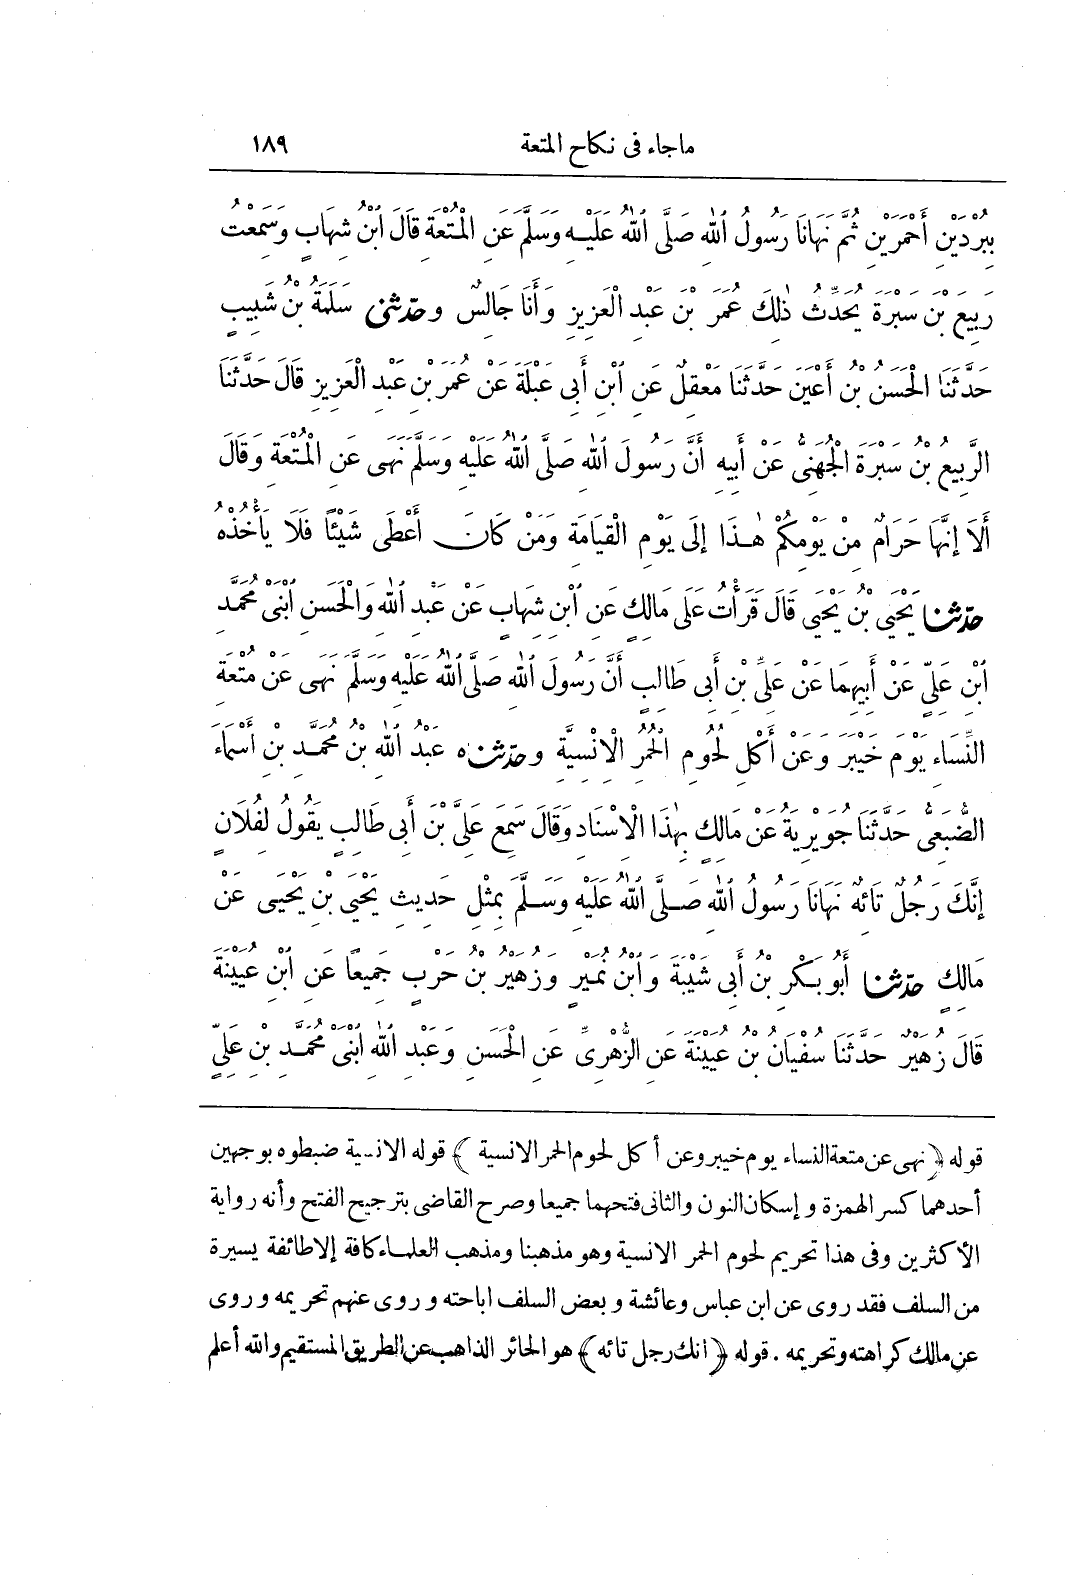 ماجاء فى نكاح المتعة ١٨٩
بِبُرْدَيْنِ أَحْمَرَيْنِ ثُمَّ نَهَانَا رَسُولُ ٱللهِ صَلَّى ٱللهُ عَلَيْهِ وَسَلَّمَ عَنِ الْمُتْعَةِ قَالَ ٱبْنُ شِهَابٍ وَسَمِعْتُ
رَبِيعَ بْنَ سَبْرَةَ يُحَدِّثُ ذٰلِكَ عُمَرَ بْنَ عَبْدِ الْعَزِيزِ وَأَنَا جَالِسٌ وحدّثنى سَلَمَةُ بْنُ شَبِيبٍ
حَدَّثَنَا الْحَسَنُ بْنُ أَعْيَنَ حَدَّثَنَا مَعْقِلٌ عَنِ ٱبْنِ أَبِى عَبْلَةَ عَنْ عُمَرَ بْنِ عَبْدِ الْعَزِيزِ قَالَ حَدَّثَنَا
الرَّبِيعُ بْنُ سَبْرَةَ الْجُهَنِىُّ عَنْ أَبِيهِ أَنَّ رَسُولَ ٱللهِ صَلَّى ٱللهُ عَلَيْهِ وَسَلَّمَ نَهَى عَنِ الْمُتْعَةِ وَقَالَ
أَلَا إِنَّهَا حَرَامٌ مِنْ يَوْمِكُمْ هٰذَا إِلَى يَوْمِ الْقِيَامَةِ وَمَنْ كَانَ أَعْطَى شَيْئًا فَلَا يَأْخُذْهُ
حدّثنا يَحْيَى بْنُ يَحْيَى قَالَ قَرَأْتُ عَلَى مَالِكٍ عَنِ ٱبْنِ شِهَابٍ عَنْ عَبْدِ ٱللهِ وَالْحَسَنِ ٱبْنَىْ مُحَمَّدِ
ٱبْنِ عَلِيٍّ عَنْ أَبِيهِمَا عَنْ عَلِىِّ بْنِ أَبِى طَالِبٍ أَنَّ رَسُولَ ٱللهِ صَلَّى ٱللهُ عَلَيْهِ وَسَلَّمَ نَهَى عَنْ مُتْعَةِ
النِّسَاءِ يَوْمَ خَيْبَرَ وَعَنْ أَكْلِ لُحُومِ الْحُمُرِ الْإِنْسِيَّةِ وحدّثناه عَبْدُ ٱللهِ بْنُ مُحَمَّدِ بْنِ أَسْمَاءَ
الضُّبَعِىُّ حَدَّثَنَا جُوَيْرِيَةُ عَنْ مَالِكٍ بِهٰذَا الْإِسْنَادِ وَقَالَ سَمِعَ عَلِىَّ بْنَ أَبِى طَالِبٍ يَقُولُ لِفُلَانٍ
إِنَّكَ رَجُلٌ تَائِهٌ نَهَانَا رَسُولُ ٱللهِ صَلَّى ٱللهُ عَلَيْهِ وَسَلَّمَ بِمِثْلِ حَدِيثِ يَحْيَى بْنِ يَحْيَى عَنْ
مَالِكٍ حدّثنا أَبُو بَكْرِ بْنُ أَبِى شَيْبَةَ وَٱبْنُ نُمَيْرٍ وَزُهَيْرُ بْنُ حَرْبٍ جَمِيعًا عَنِ ٱبْنِ عُيَيْنَةَ
قَالَ زُهَيْرٌ حَدَّثَنَا سُفْيَانُ بْنُ عُيَيْنَةَ عَنِ الزُّهْرِىِّ عَنِ الْحَسَنِ وَعَبْدِ ٱللهِ ٱبْنَىْ مُحَمَّدِ بْنِ عَلِيٍّ
قوله ﴿نهى عن متعة النساء يوم خيبر وعن أكل لحوم الحمر الانسية﴾ قوله الانسية ضبطوه بوجهين
أحدهما كسر الهمزة وإسكان النون والثانى فتحهما جميعا وصرح القاضى بترجيح الفتح وأنه رواية
الأكثرين وفى هذا تحريم لحوم الحمر الانسية وهو مذهبنا ومذهب العلماء كافة إلا طائفة يسيرة
من السلف فقد روى عن ابن عباس وعائشة وبعض السلف اباحته وروى عنهم تحريمه وروى
عن مالك كراهته وتحريمه . قوله ﴿انك رجل تائه﴾ هو الحائر الذاهب عن الطريق المستقيم والله أعلم